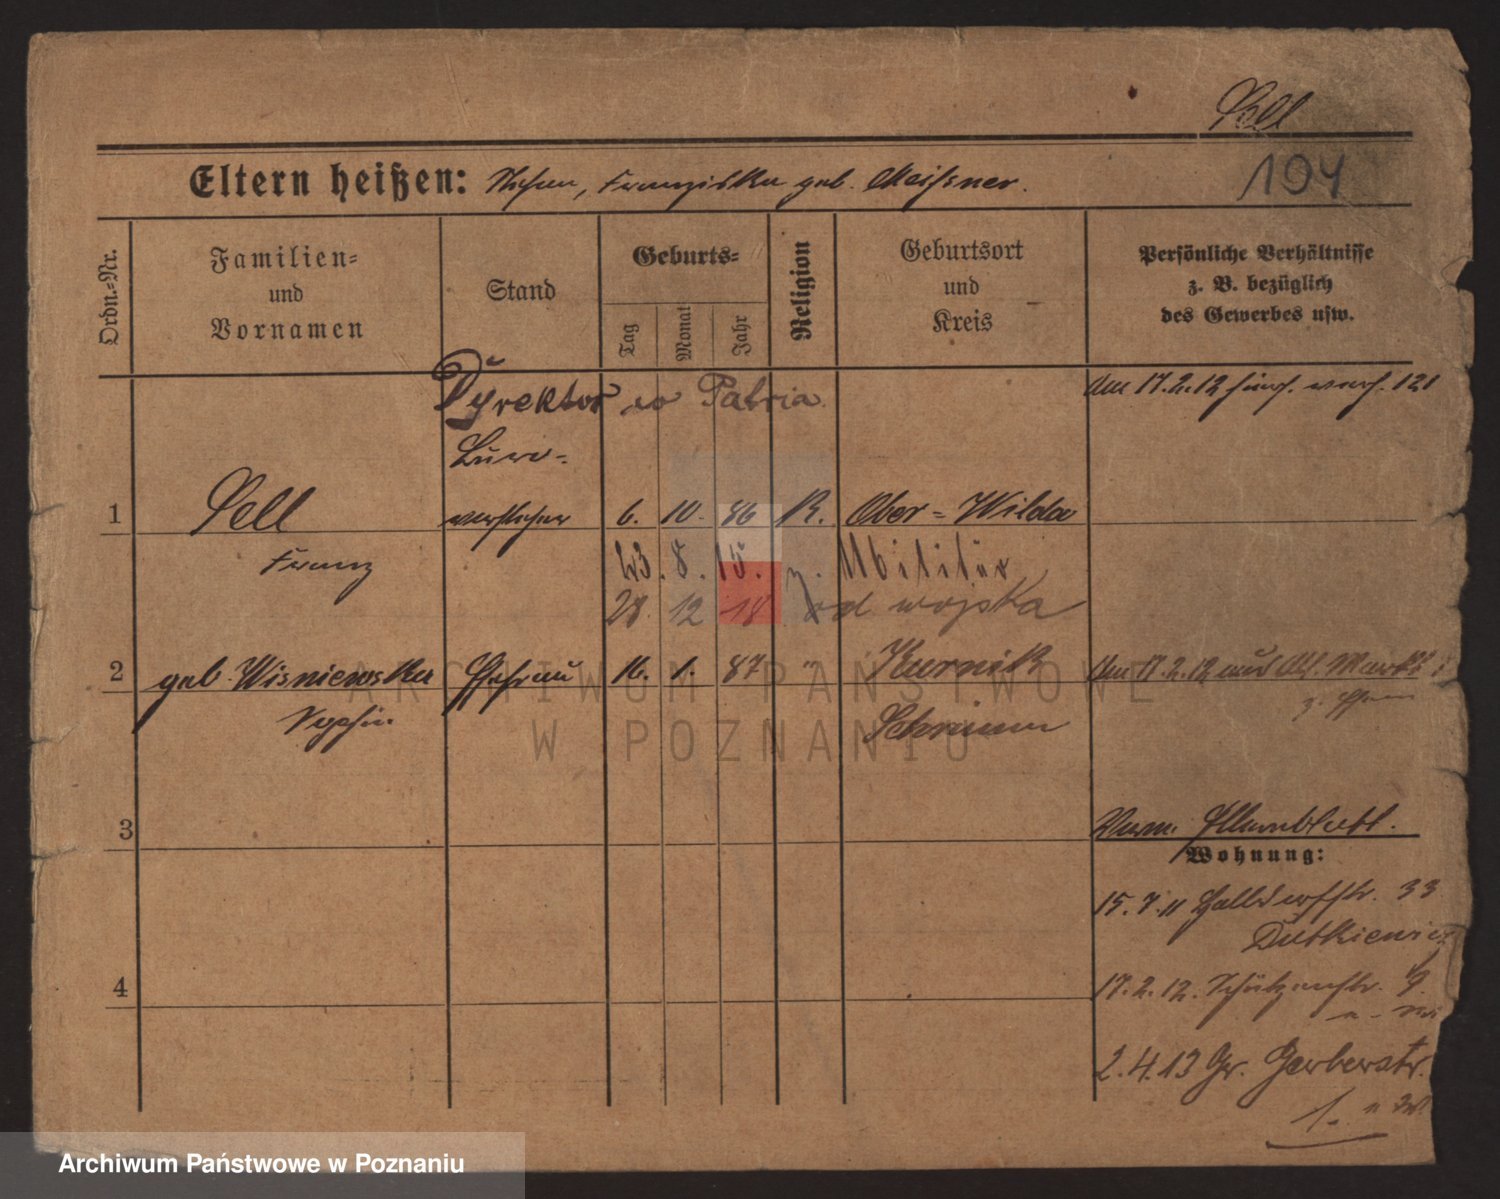 Sell
194
Eltern heißen: Stefan, Franziska geb. Meissner.
Ordn.-Nr.
Familien-
und
Vornamen
Stand
Geburts-
Tag
Monat
Jahr
Religion
Geburtsort
und
Kreis
Persönliche Verhältnisse
z. B. bezüglich
des Gewerbes usw.
Dyrektor Patria
Am 17.2.12
Büro-
1 Sell vorsteher 6. 10. 86 K. Ober-Wilda
Franz 23. 8. 15. z. Militär
28 12 18 od wojska
2 geb. Wisniewska Ehefrau 16. 1. 87 " Kurnik Am 17.2.12 aus
Sophie Schrimm
3
Wohnung:
15.7.11 33
Dutkiewicz
4 17.2.12. Schützenstr.
2.4.13 Gr. Gerberstr.
1.
ARCHIWUM PAŃSTWOWE
W POZNANIU
Archiwum Państwowe w Poznaniu